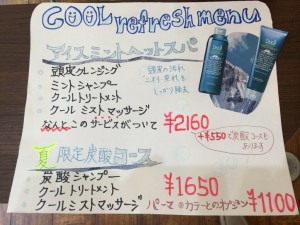 COOL refresh menu
アイスミントヘッドスパ
・頭皮クレンジング
・ミントシャンプー
・クールトリートメント
・クールミストマッサージ
頭皮の汚れ
しっかり除去
なんとこのサービスがついて ¥2160
+¥550で炭酸コースも
あります
夏限定炭酸コース
・炭酸シャンプー
・クールトリートメント
・クールミストマッサージ
¥1650
パーマ・カラーとのオプション ¥1100